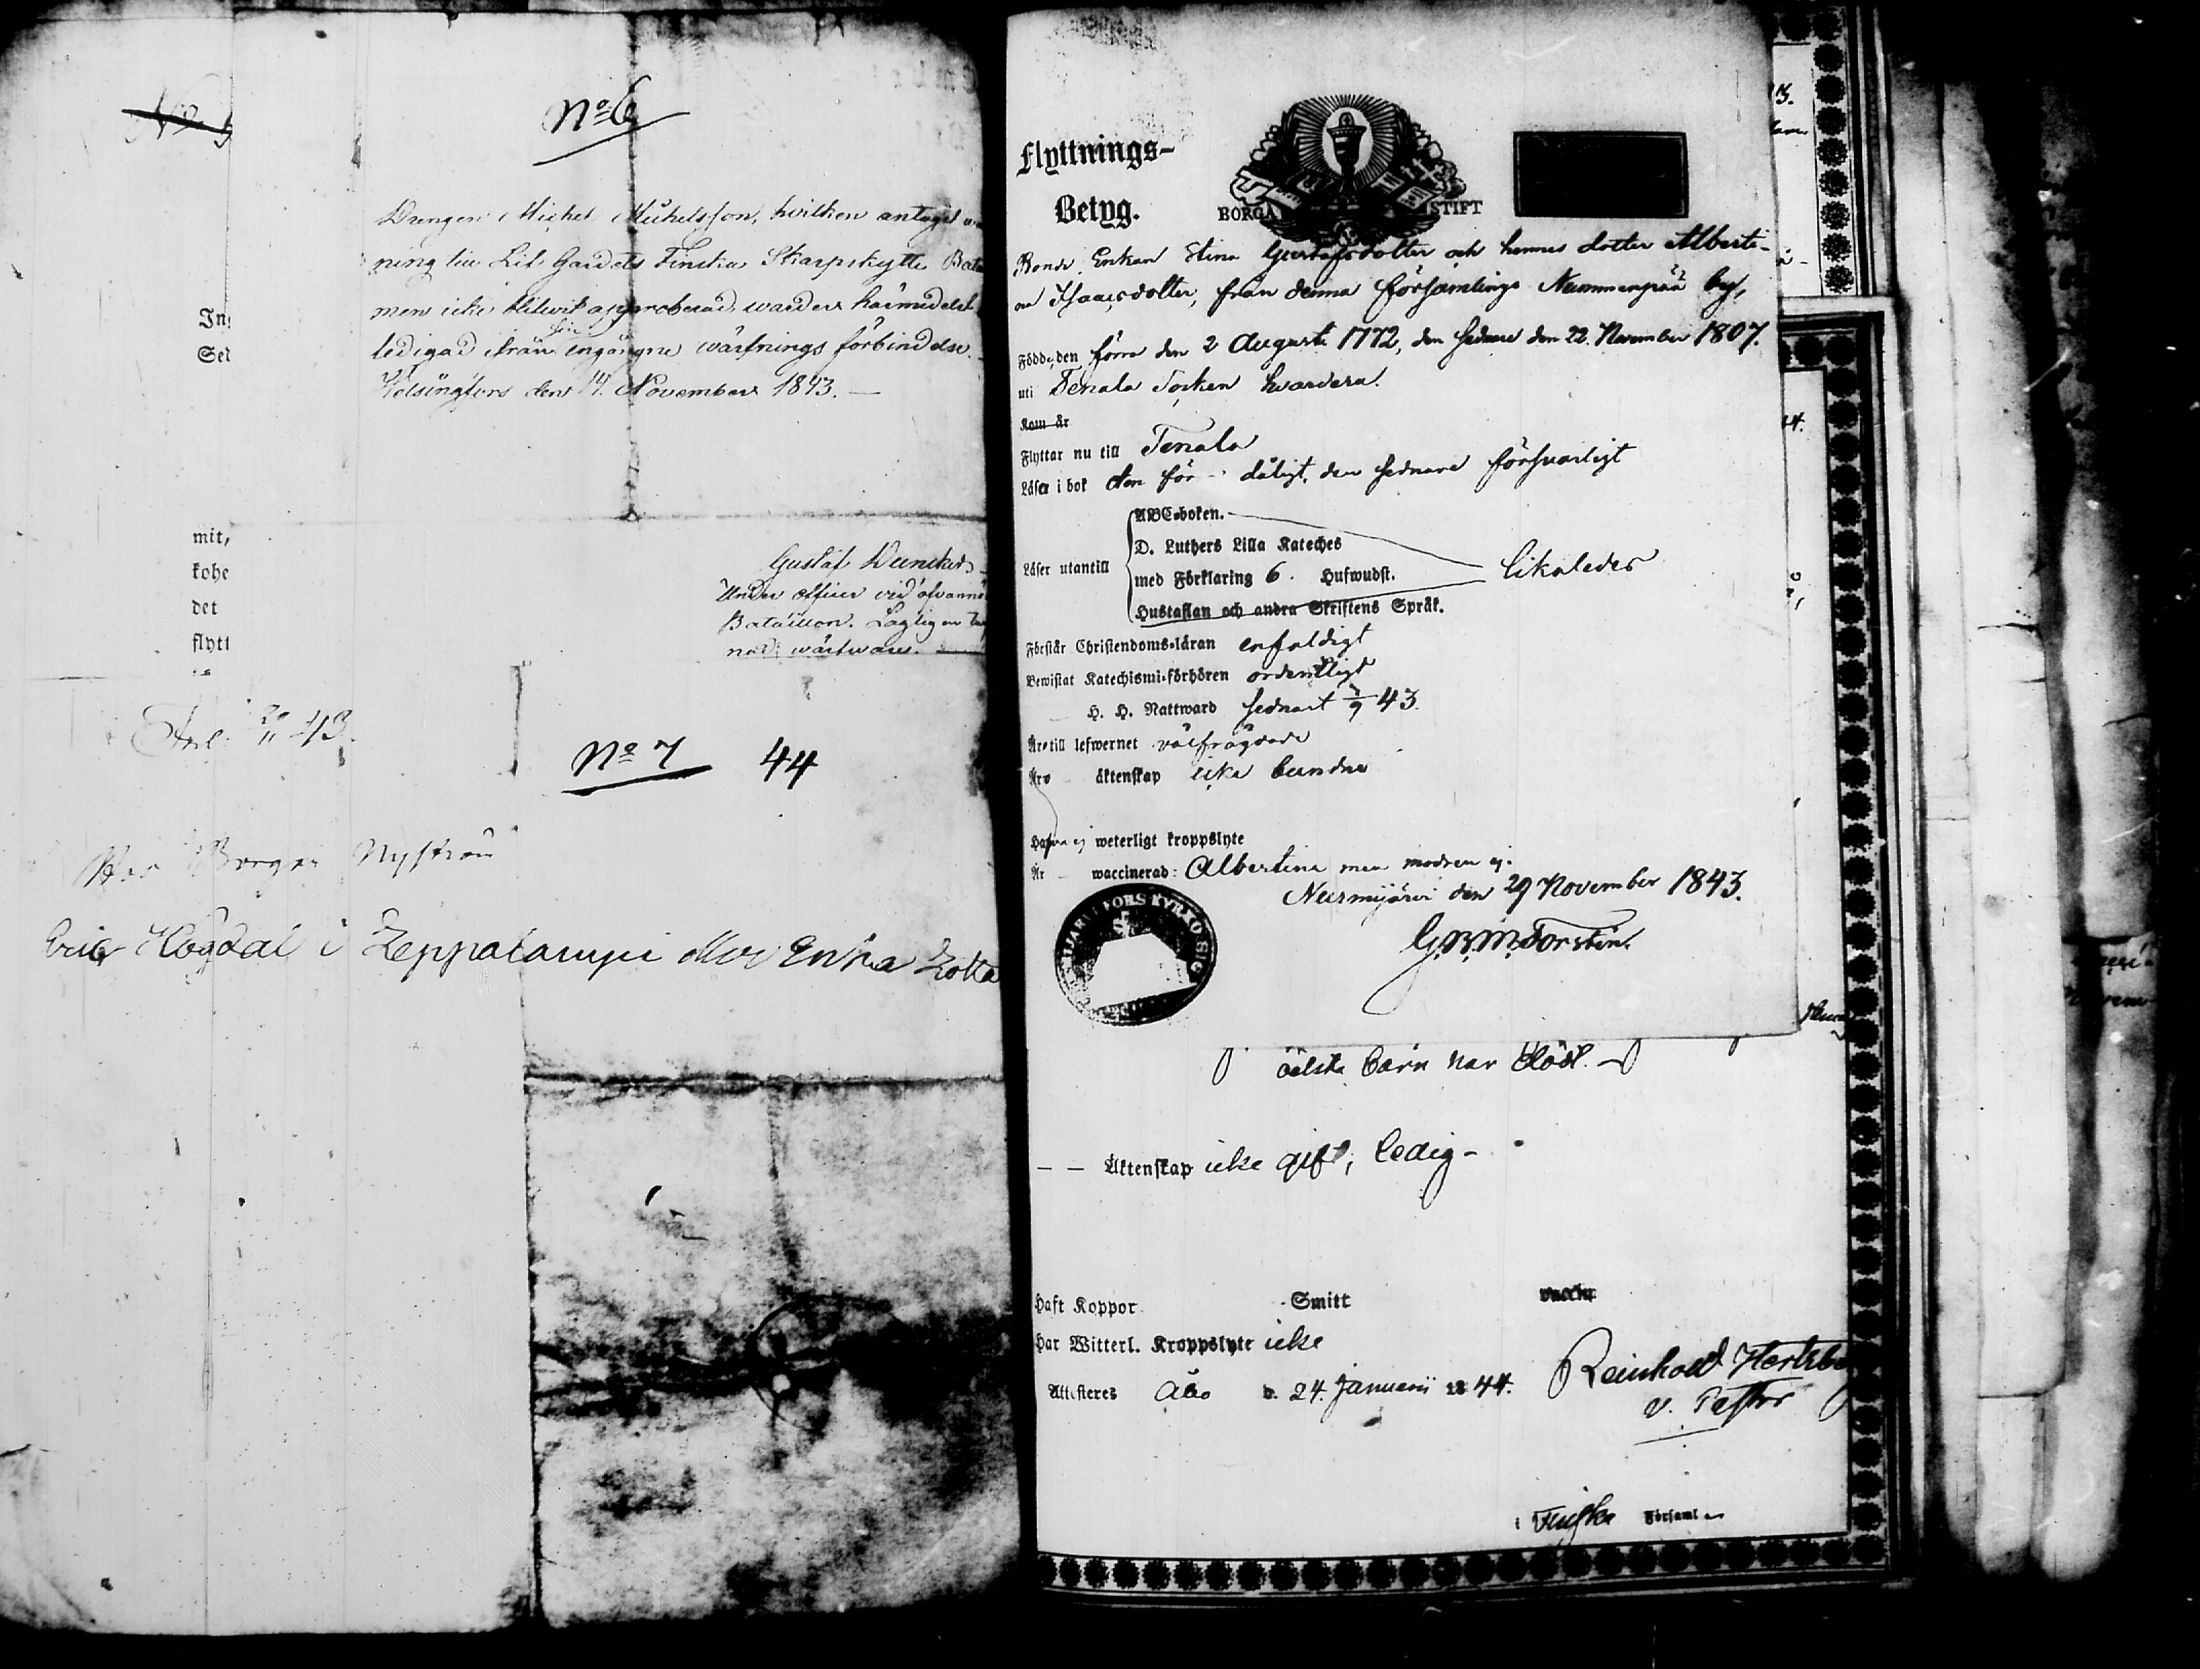 No 6
Drengen Michel Michelsson, hvilken antagit
ning till Lif Gardets Finska Skarpskytte Bata
men icke blifvit approberad, warder härmedelst
ledigad ifrån sin ingångne wärfnings förbindelse.
Helsingfors den 14 November 1843. —
In
Sed
Gustaf
Under officer vid ofvannä
Bataillon. Laglig en
nad wärfware.
mit,
kohe
det
flytt
20/11 43.
No 7 44
Nyström
Eric Högdal i Leppalampi Mor Enka Lotta
Flyttnings-
Betyg.
BORGÅ STIFT
Bonde Enkan Stina Gustafsdotter och hennes dotter Alberti-
na Isaacsdotter, från denna församlings Nummenpää by,
Födde, den förra den 2 Augusti 1772, den sednare den 22. November 1807.
uti Tenala Socken hvardera.
Kom år
Flyttar nu till Tenala
Läser i bok den för - dåligt, den sednare försvarligt
ABC-boken.
D. Luthers Lilla Kateches
Läser utantill med Förklaring 6. Hufwudst. likaledes
Hustaflan och andra Skriftens Språk.
Förstår Christendoms-läran enfaldigt
Bewistat Katechismi-förhören ordentligt
H. H. Nattward sednast 7/9 43.
Äro till lefwernet välfrägdade
Äro äktenskap icke bundne
Hafva ej weterligt kroppslyte
Är waccinerad: Albertina men modren ej.
Nurmijärvi den 29 November 1843.
G. W. M. Forstén.
barn har
Äktenskap icke gift, ledig -
Haft Koppor. Smitt
Har Witterl. Kroppslyte icke
Attesteres Åbo d. 24. Januarii 1844. Reinhold Hertzbe
v. Pastor
i Finska Församl